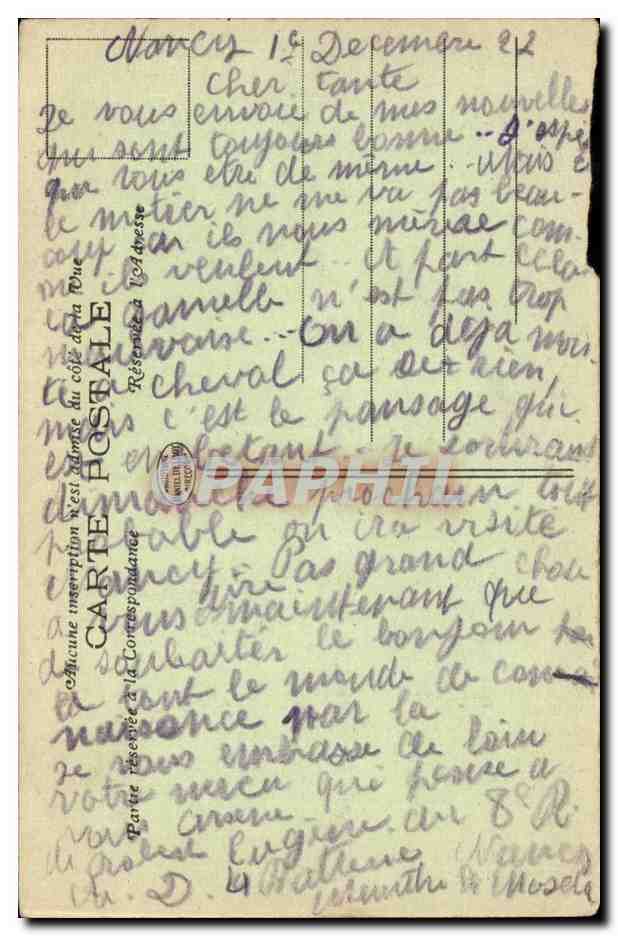 Nancy 1e Decembre 22
Cher tante
Je vous envoie de mes nouvelles
qui sont toujours bonne.. J'espè
que vous etre de même.. Mais
le métier ne me va pas beau-
coup car ils nous mène com-
me ils veulent.. A part cela
la gamelle n'est pas trop
mauvaise... On a déjà mon-
té a cheval ça set rien,
mais c'est le pansage qui
est embetant. Je sortirais
dimanche prochain tout
probable on ira visité
Nancy. Pas grand chose
a vous dire maintenant que
de souhaiter le bonjour
a tout le monde de con
naisance par la
Je vous embrasse de loin
votre neveu qui pense a
vous
Eugène au 8e R.
D. 4 Batterie Nancy
Meurthe et Mosel
CARTE POSTALE
Aucune inscription n'est admise du côté de la Vue
Partie réservée à la Correspondance
Réservée à l'Adresse
PAPHIL